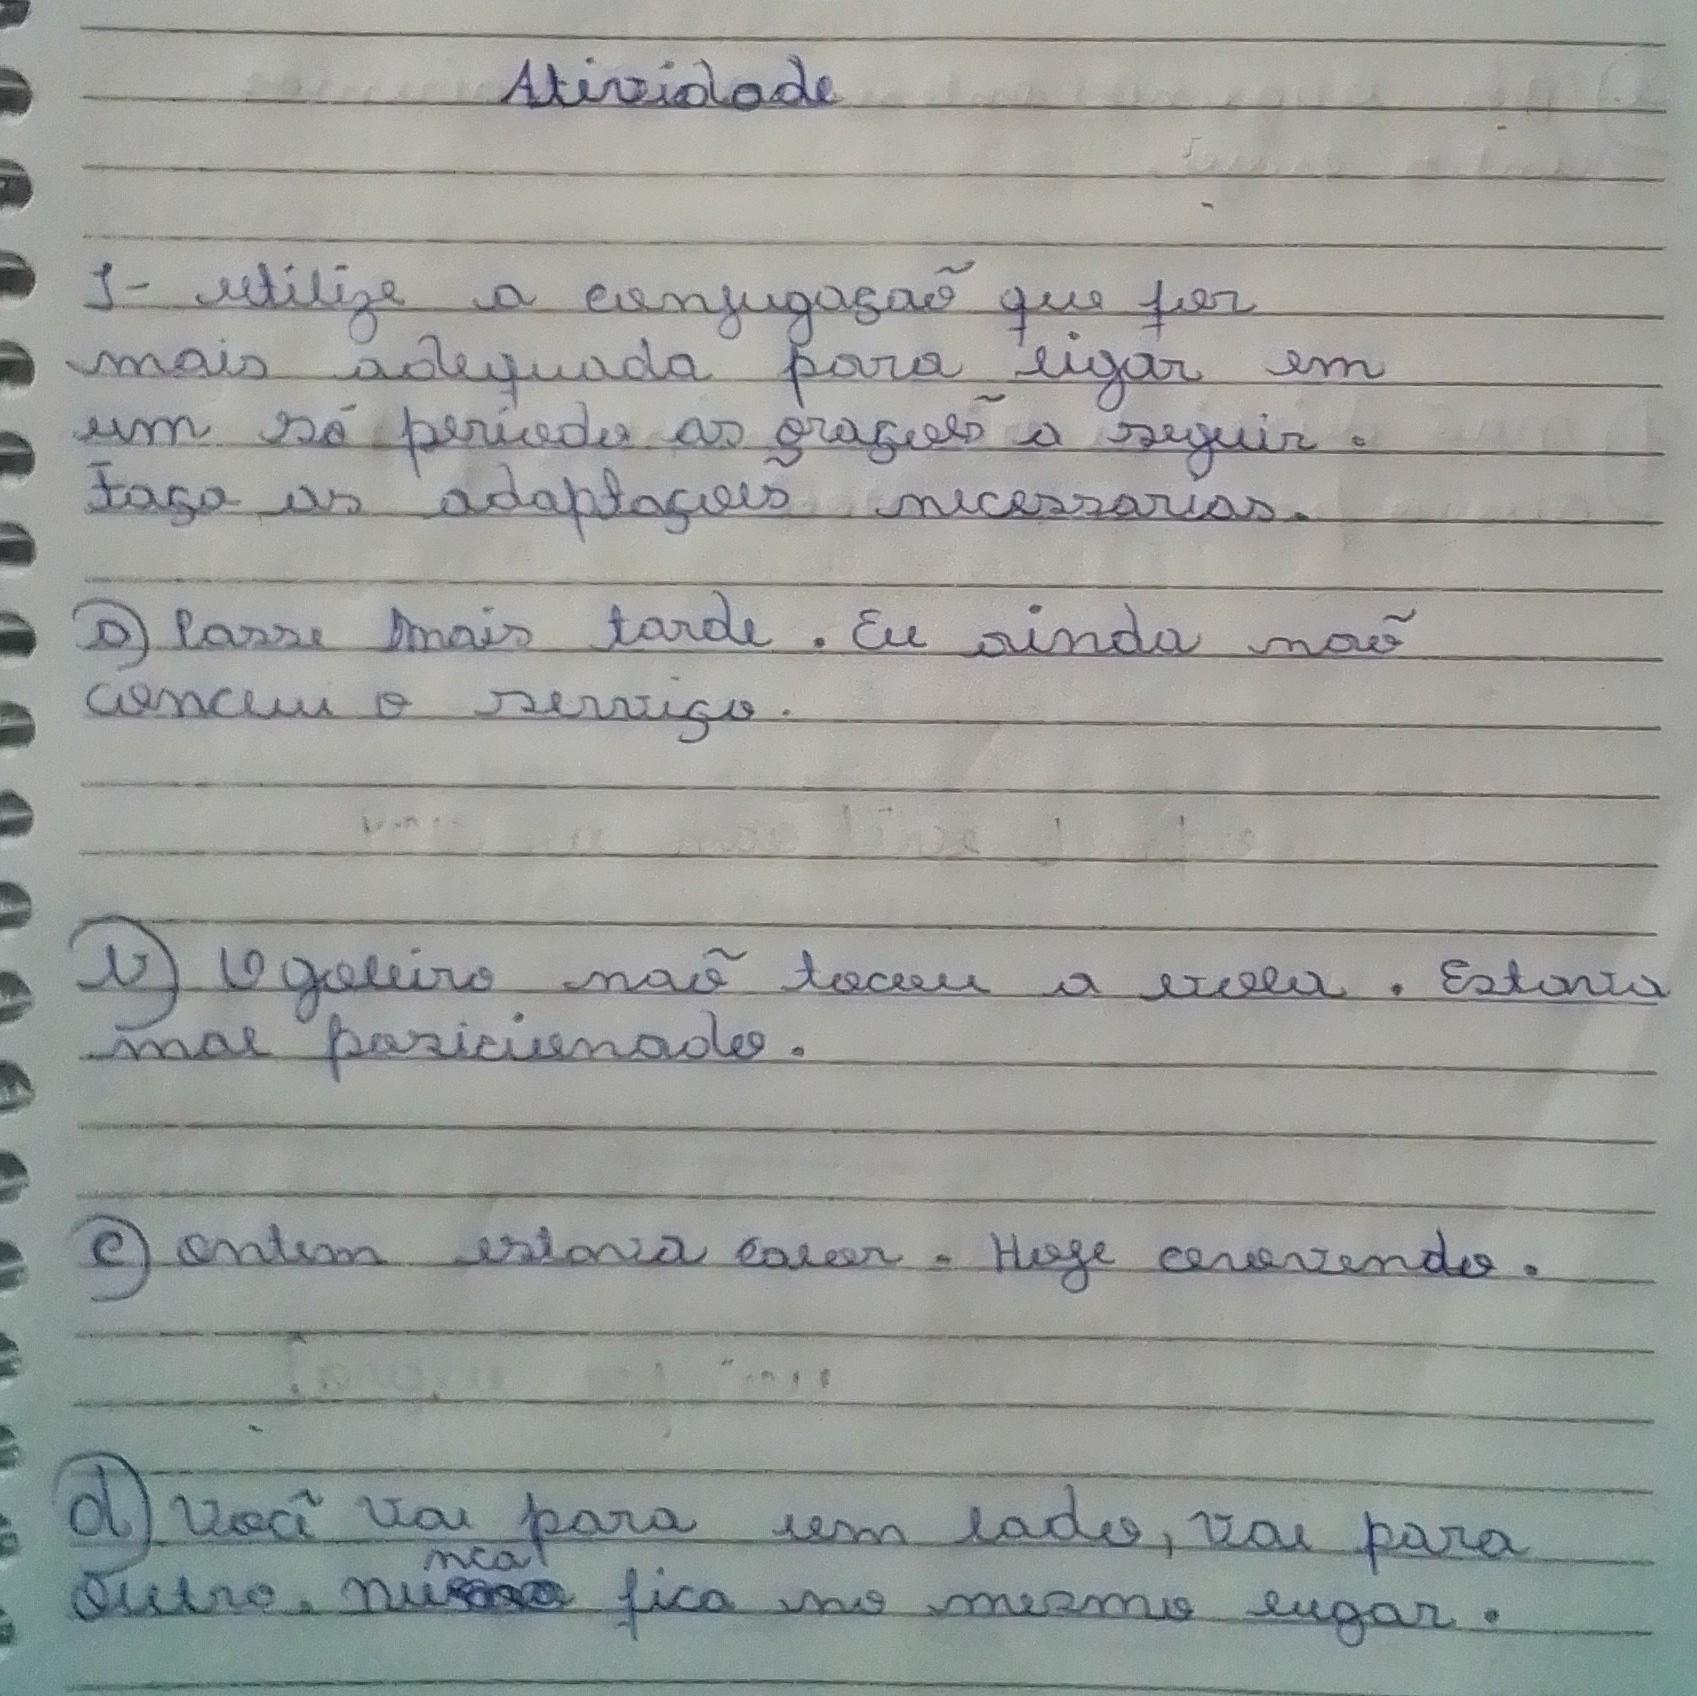 Atividade
1- utilize a conjugação que for
mais adequada para ligar em
um só periodo as orações a seguir.
Faça as adaptações necessarias.
a) Passe mais tarde. Eu ainda não
concui o serviço.
b) O goleiro não tocou a bola. Estava
mal posicionado.
c) ontem estava calor. Hoje chovendo.
d) você vai para um lado, vai para
outro. nunca fica no mesmo lugar.